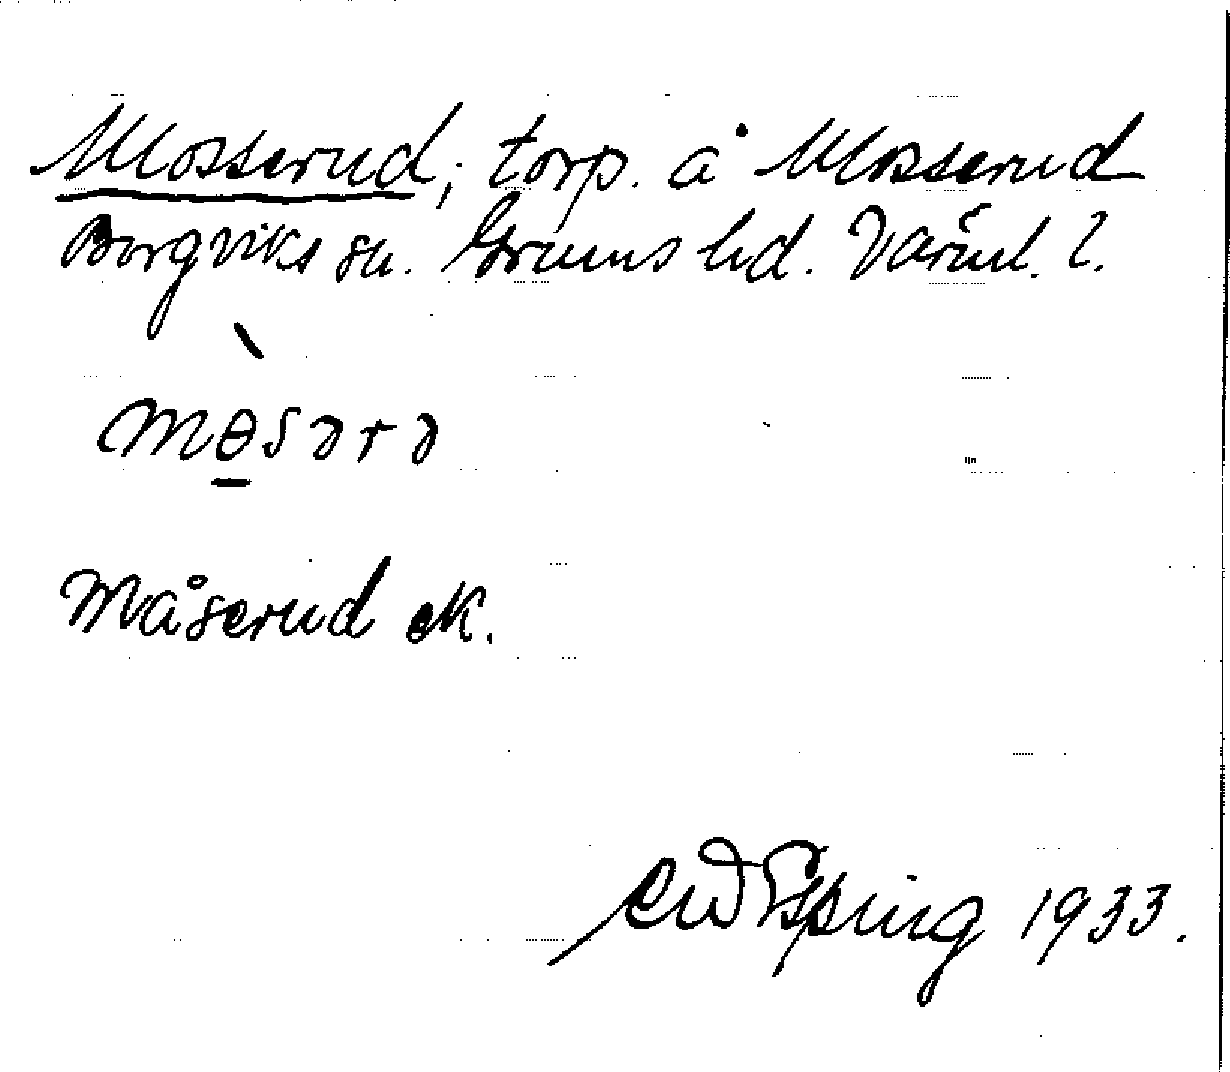 Mosserud, torp. å Mosserud
Borgviks sn. Grums hd. Värml. l.
mɵ̱̀sərə
Måserud ek.
Esping 1933.